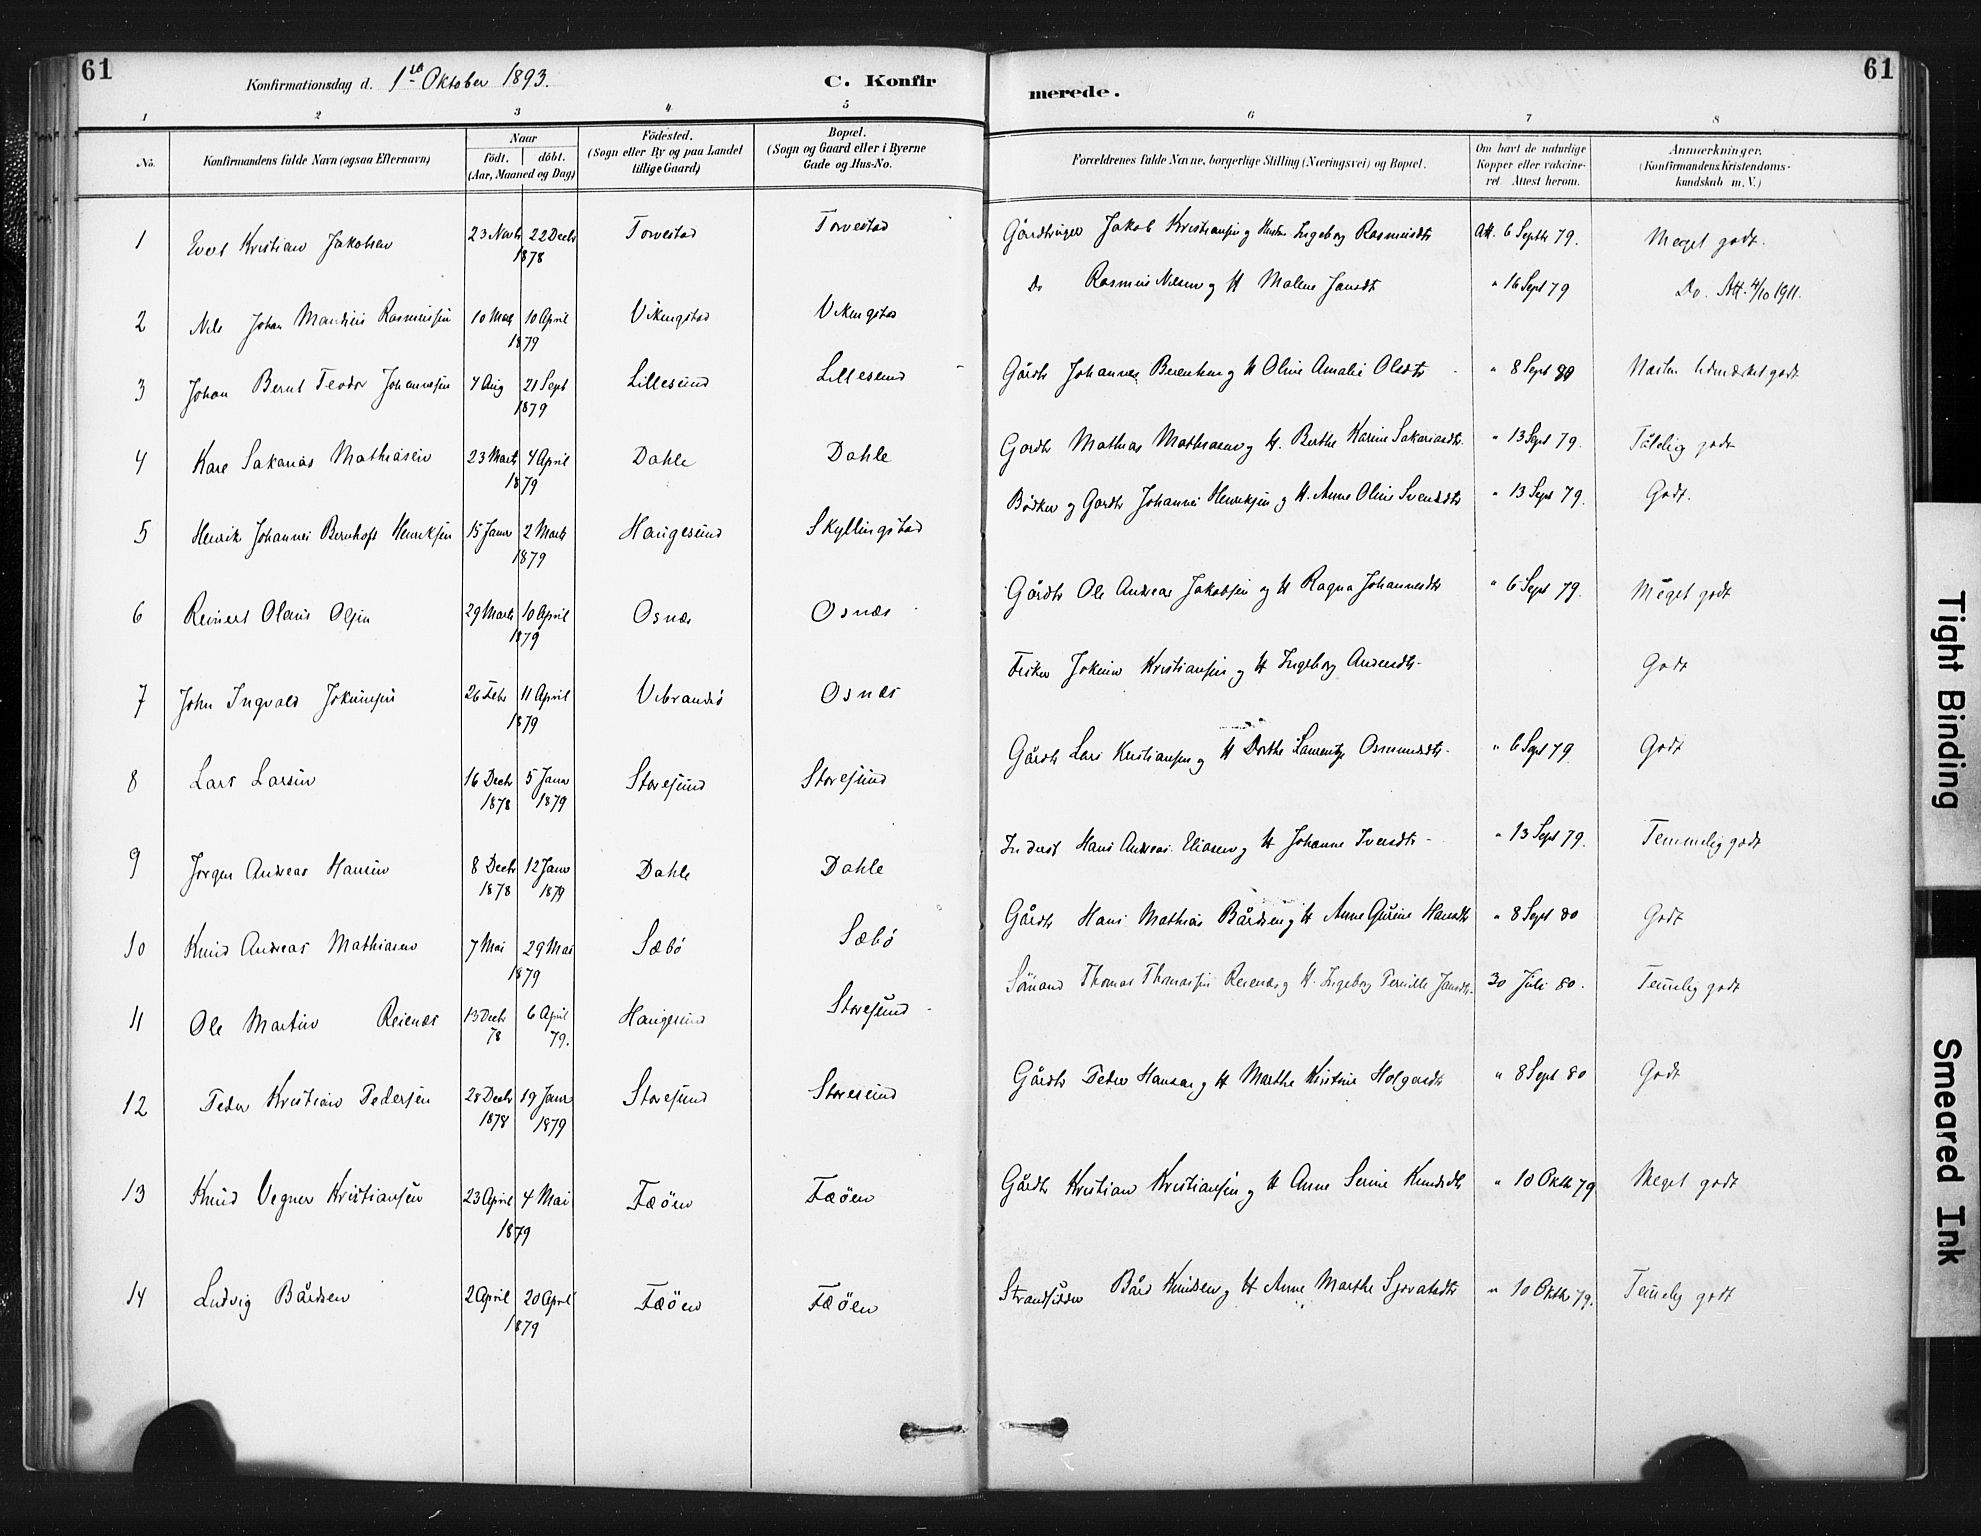 61
Konfirmationsdag d. 1ste Oktober 1893.
C. Konfir
merede.
61
1 2 3 4 5 6 7 8
No.
Konfirmandens fulde Navn (ogsaa Efternavn)
Naar
födt. döbt.
(Aar, Maaned og Dag)
Födested.
(Sogn eller By og paa Landet
tillige Gaard)
Bopæl.
(Sogn og Gaard eller i Byerne
Gade og Hus-No.
Forældrenes fulde Navne, borgerlige Stilling (Næringsvei) og Bopæl.
Om havt de naturlige
Kopper eller vakcine-
ret. Attest herom.
Anmærkninger.
(Konfirmandens Kristendoms-
kundskab m. V.)
1 Kristian Jakobsen 23 Novbr 22 Decbr 1878 Torvestad Torvestad Gårdbruger Jakob Kristiansen og Hustru Ingeborg Rasmusdtr Att. 6 Septbr 79. Meget godt.
2 Nils Johan Mandius Rasmussen 10 Mars 10 April 1879 Vikingstad Vikingstad Do Rasmus Nilsen og H Malene Jansdtr " 16 Sept 79 Do. Att. 4/10 1911.
3 Johan Bernt Teodor Johannessen 7 Aug 21 Sept 1879 Lillesund Lillesund Gårdbr Johannes Berentsen og H Oline Amalie Olsdtr " 8 Sept Næsten udmærket godt
4 Kare Sakarias Mathiasen 23 Marts 4 April 1879 Dahle Dahle Gårdbr Mathias Mathiasen og H. Berthe Karine Sakariasdtr " 13 Sept 79. Tålelig godt
5 Henrik Johannes Bernhoft Henriksen 15 Janr 2 Marts 1879 Haugesund Skyllingstad Bödker og Gårdbr Johannes Henriksen og H. Anne Oline Svendsdtr " 13 Sept 79. Godt.
6 Reinert Olaus Olsen 29 Marts 10 April 1879 Osnæs Osnæs Gårdbr Ole Andreas Jakobsen og H Ragna Johannesdtr " 6 Sept 79. Meget godt
7 John Ingvald Jokumsen 26 Febr 11 April 1879 Vibrandsö Osnæs Fisker Jokum Kristiansen og H Ingeborg Godt
8 Lars Larsen 16 Decbr 1878 5 Janr 1879 Storesund Storesund Gårdbr Lars Kristiansen og H Dorthe Laurentze Osmundsdtr " 6 Sept 79. Godt
9 Jorgen Andreas Hansen 8 Decbr 1878 12 Janr 1879 Dahle Dahle Inderst Hans Andreas Eliasen og H Johanne Iversdtr " 13 Sept 79. Temmelig godt
10 Knud Andreas Mathiasen 7 Mai 29 Mai 1879 Sæbö Sæbö Gårdbr Hans Mathias Bårdsen og H Anne Gurine Hansdtr " 8 Sept 80 Godt
11 Ole Martin Reienæs 13 Decbr 78 6 April 79. Haugesund Storesund Sömand Thomas Thomassen Reienæs og H. Ingeborg Pernille Jansdtr 30 Juli 80. Temmelig godt
12 Peder Kristian Pedersen 28 Decbr 1878 19 Janr 1879 Storesund Storesund Gårdbr Peder Hansen og H Marthe Kirstine Holgersdtr " 8 Sept 80 Godt
13 Knud Vegner Kristiansen 23 April 4 Mai 1879 Fæöen Fæöen Gårdbr Kristian Kristiansen og H Anne Serine Knudsdtr " 10 Oktbr 79 Meget godt
14 Ludvig Bårdsen 2 April 20 April 1879 Fæöen Fæöen Strandsidder Bård Knudsen og H Anne Marthe Sjovatsdtr " 10 Oktbr 79. Temmelig godt
Tight Binding
Smeared Ink